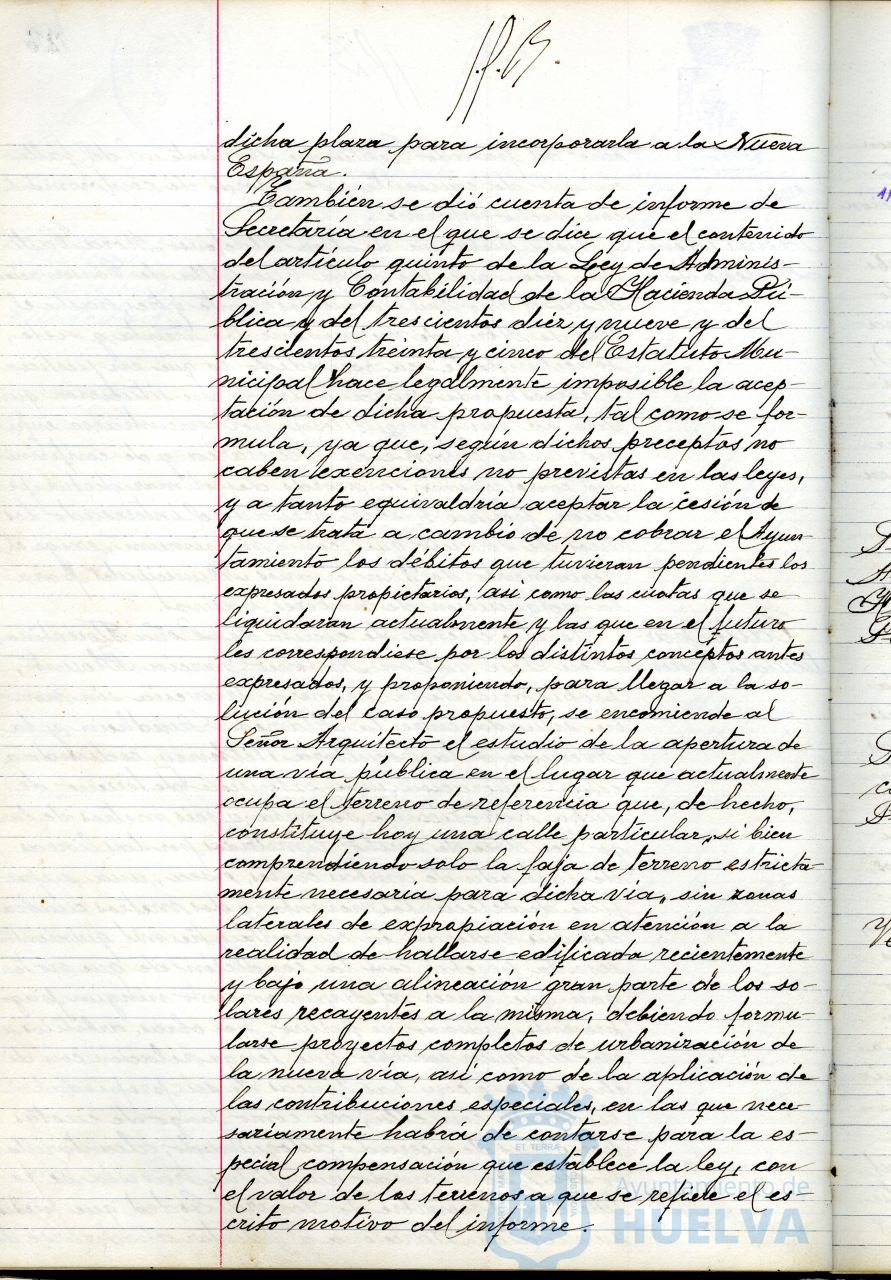 dicha plaza para incorporarla a la Nueva
España.
También se dió cuenta de informe de
Secretaría en el que se dice que el contenido
del artículo quinto de la Ley de Adminis-
tración y Contabilidad de la Hacienda Pú-
blica y del trescientos diéz y nueve y del
trescientos treinta y cinco del Estatuto Mu-
nicipal hace legalmente imposible la acep-
tación de dicha propuesta, tal como se for-
mula, ya que, según dichos preceptos no
caben exenciones no previstas en las leyes,
y a tanto equivaldría aceptar la cesión de
que se trata a cambio de no cobrar el Ayun-
tamiento los débitos que tuvieran pendientes los
expresados propietarios, asi como las cuotas que se
liquidaran actualmente y las que en el futuro
les correspondiese por los distintos conceptos antes
expresados, y proponiendo, para llegar a la so-
lución del caso propuesto, se encomiende al
Señor Arquitecto el estudio de la apertura de
una vía pública en el lugar que actualmente
ocupa el terreno de referencia que, de hecho,
constituye hoy una calle particular, si bien
comprendiendo solo la faja de terreno estricta-
mente necesaria para dicha vía, sin zonas
laterales de expropiación en atención a la
realidad de hallarse edificada recientemente
y bajo una alineación gran parte de los so-
lares recayentes a la misma, debiendo formu-
larse proyectos completos de urbanización de
la nueva vía, así como de la aplicación de
las contribuciones especiales, en las que nece-
sariamente habrá de contarse para la es-
pecial compensación que establece la ley, con
el valor de los terrenos a que se refiere el es-
crito motivo del informe.
Ayuntamiento de
HUELVA